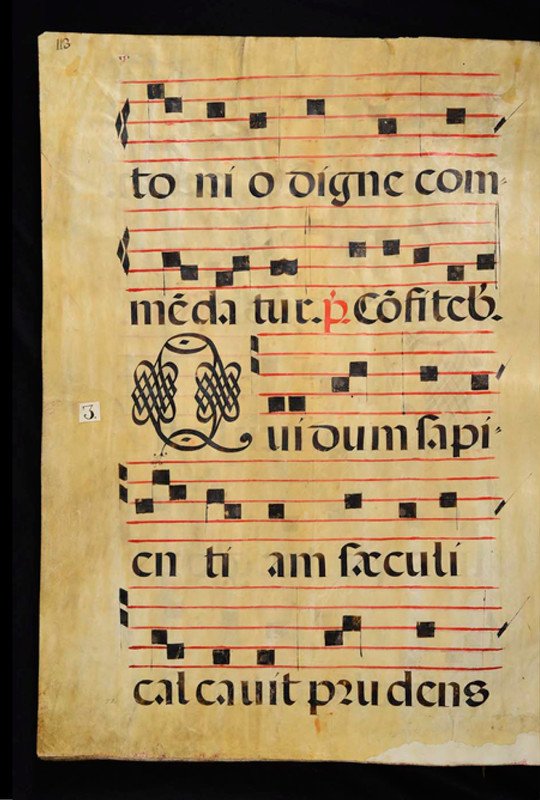 113
to ni o digne com-
mēda tur. p̄. Cōfiteb.
3.
Qui dum sapi-
en ti am sæculi
calcauit prudens